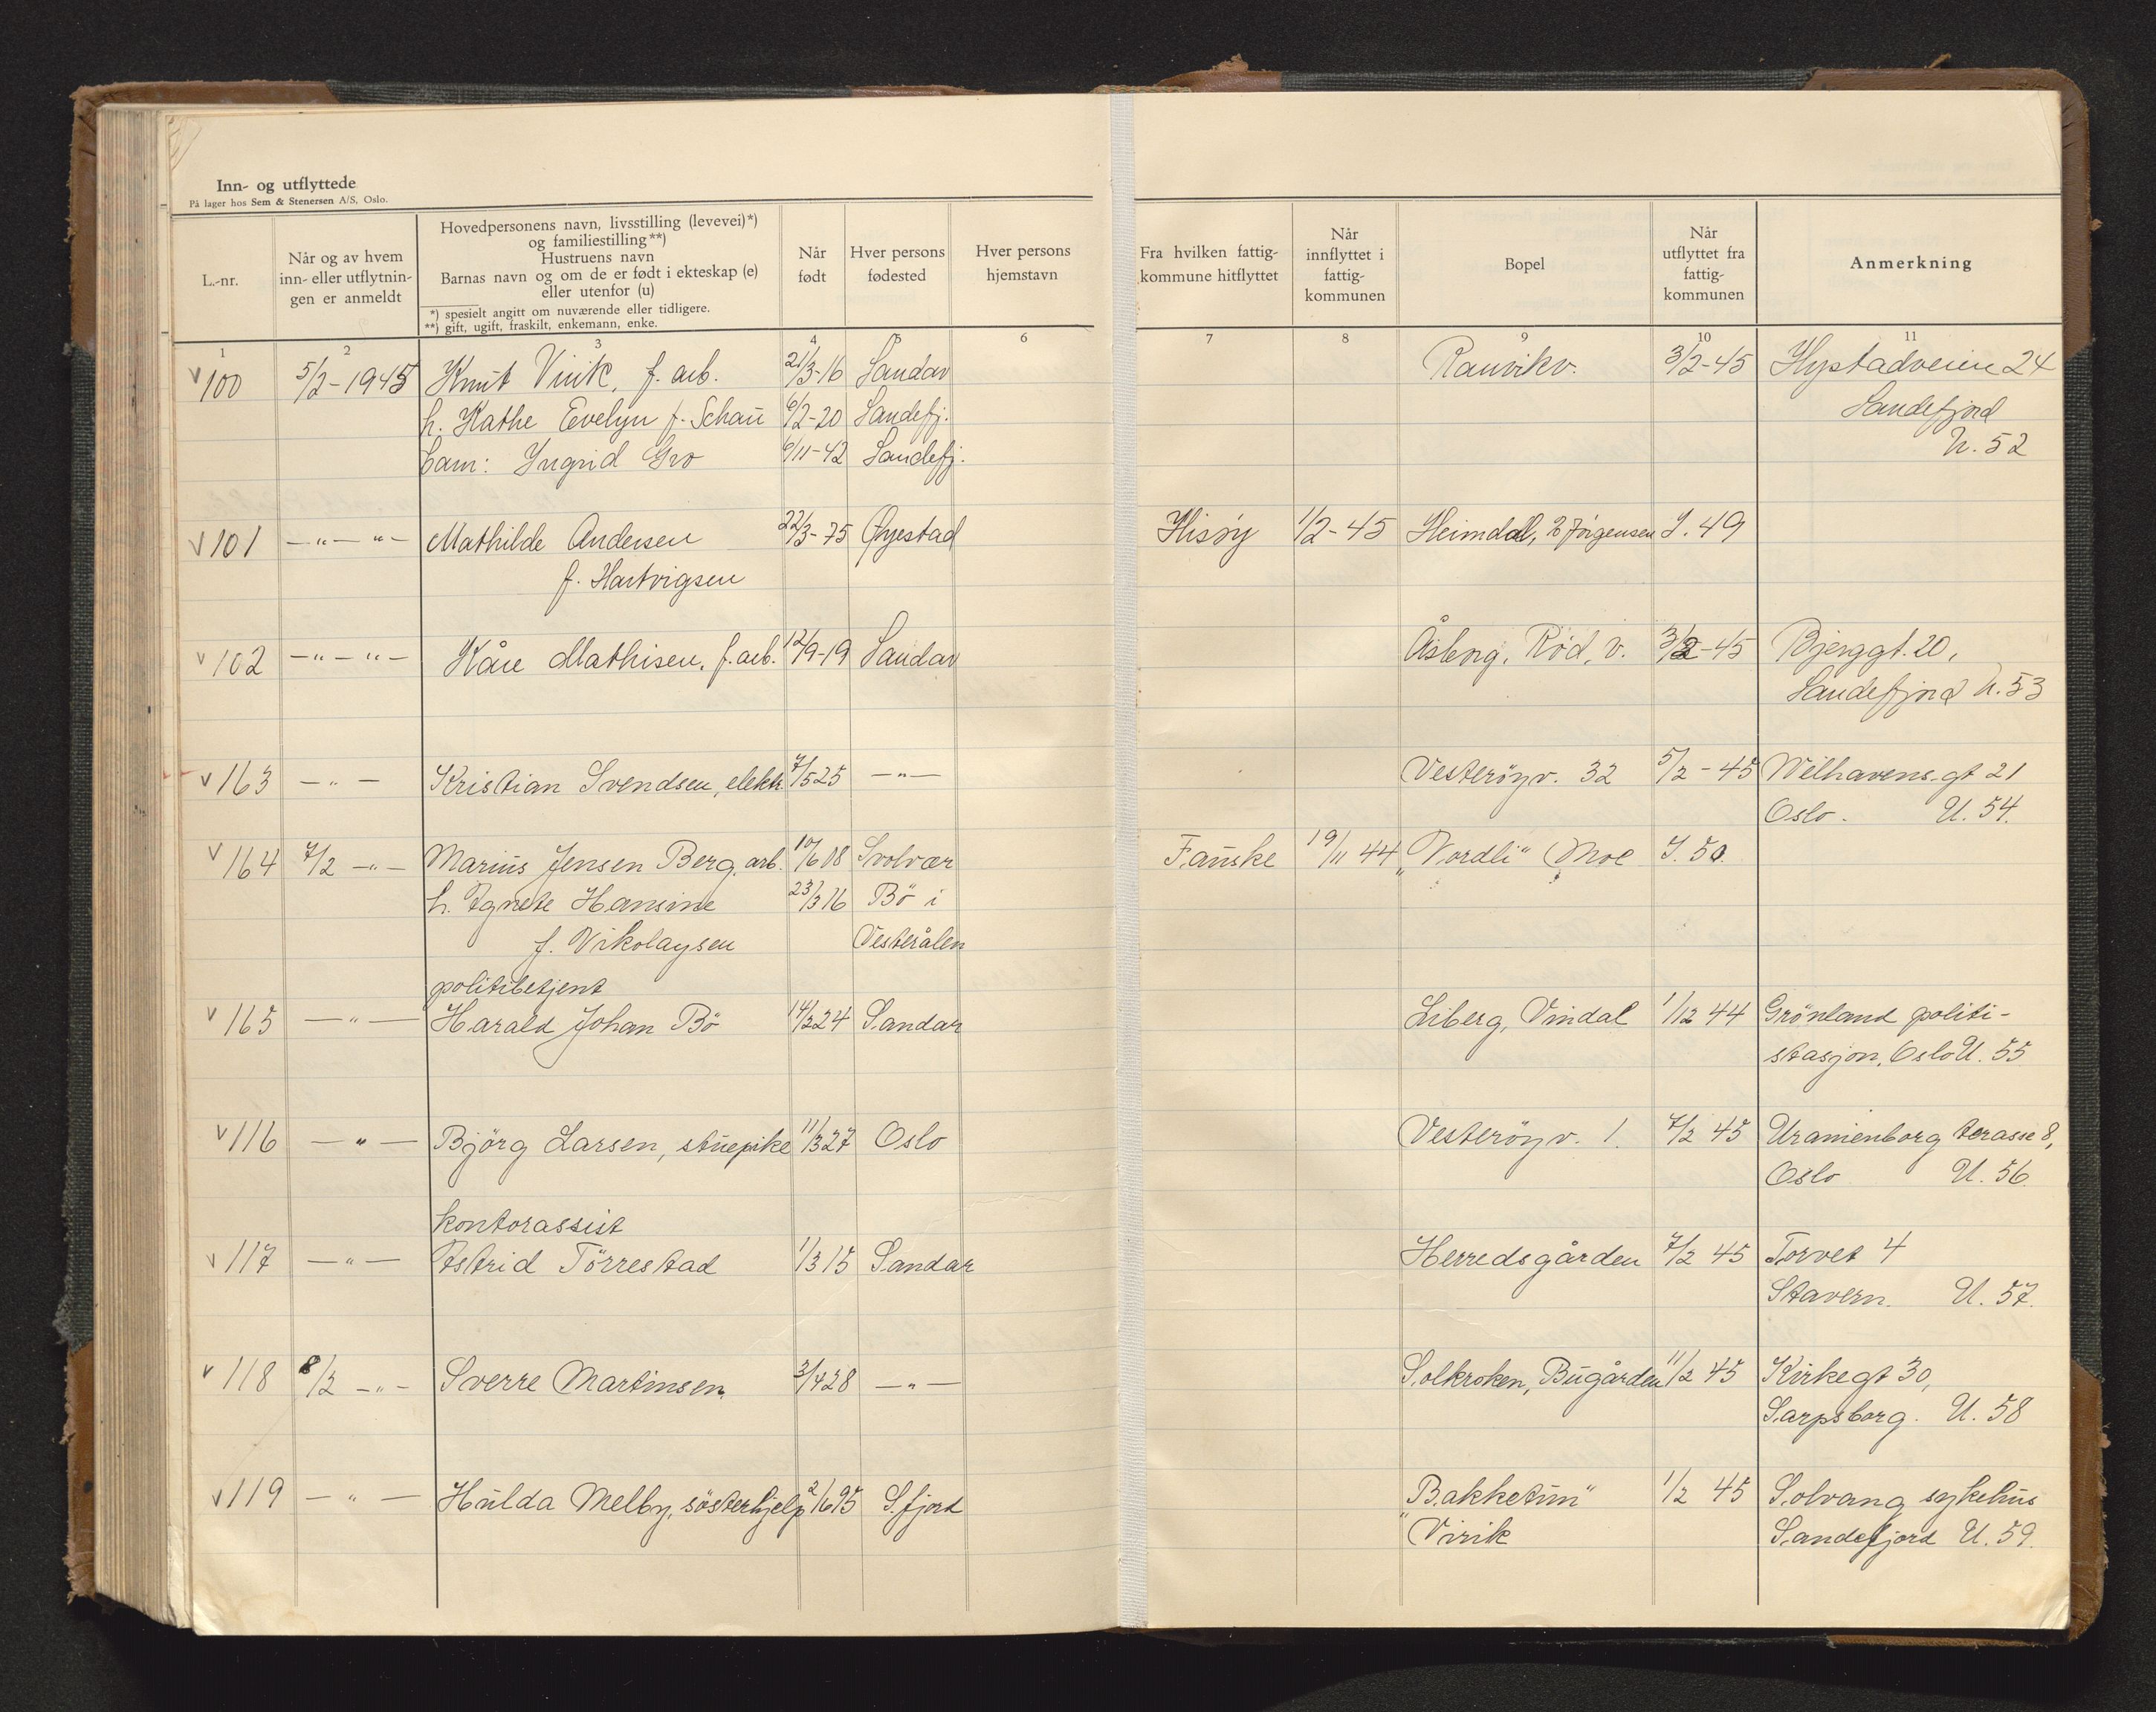 Inn- og utflyttede
På lager hos Sem & Stenersen A/S, Oslo.
L.-nr.
Når og av hvem
inn- eller utflytnin-
gen er anmeldt
Hovedpersonens navn, livsstilling (levevei)*)
og familiestilling**)
Hustruens navn
Barnas navn og om de er født i ekteskap (e)
eller utenfor (u)
*) spesielt angitt om nuværende eller tidligere.
**) gift, ugift, fraskilt, enkemann, enke.
Når
født
Hver persons
fødested
Hver persons
hjemstavn
Fra hvilken fattig-
kommune hitflyttet
Når
innflyttet i
fattig-
kommunen
Bopel
Når
utflyttet fra
fattig-
kommunen
Anmerkning
1 2 3 4 5 6 7 8 9 10 11
v 100 5/2-1945 Knut Virik, f. arb. 21/3-16 Sandar Ranvikv. 3/2-45 Hystadveien 24
h. Kathe Evelyn f. Schau 6/2-20 Sandefj. Sandefjord
barn: Ingrid Gro 6/11-42 Sandefj. U. 52
v 101 —"— "— Mathilde Andersen 22/3-75 Øyestad Hisöy 1/2-45 Heimdal, Jörgensen I. 49
f. Hartvigsen
v 102 —"—"— Kåre Mathisen, f. arb. 12/9-19 Sandar Åsleng, Röd, V. 3/2-45 Bjerggt. 20,
Sandefjord U. 53
v 163 —"— Kristian Svendsen, elektr. 7/5 25 —"— Vesteröyv. 32 5/2-45 Welhavens-gt 21
Oslo. U. 54.
v 164 7/2 —"— Marius Jensen Berg, arb. 10/6 08 Svolvær Fauske 19/11 44 "Nordli" Moe I. 50.
h. Agnete Hansine 23/3 16 Bö i
f. Nikolaysen Vesterålen
politibetjent
v 165 —"— Harald Johan Bö 14/2 24 Sandar Liberg, Vindal 1/12 44 Grönland politi-
stasjon, Oslo U. 55
v 116 —"— Björg Larsen, stuepike 11/3 27 Oslo Vesteröyv. 1. 7/2 45 Uranienborg terasse 8,
Oslo U. 56
kontorassist
v 117 —"— Astrid Törrestad 1/3 15 Sandar Herredsgården 7/2 45 Torvet 4
Stavern. U. 57.
v 118 8/2 —"— Sverre Martinsen 3/4 28 —"— Solkroken, Bugården 11/2 45 Kirkegt 30,
Sarpsborg. U. 58
v 119 —"— Hulda Melby, sösterhjelp 2/6 95 S.fjord "Bakketun" 1/2 45 Solvang sykehus
Virik Sandefjord U. 59.